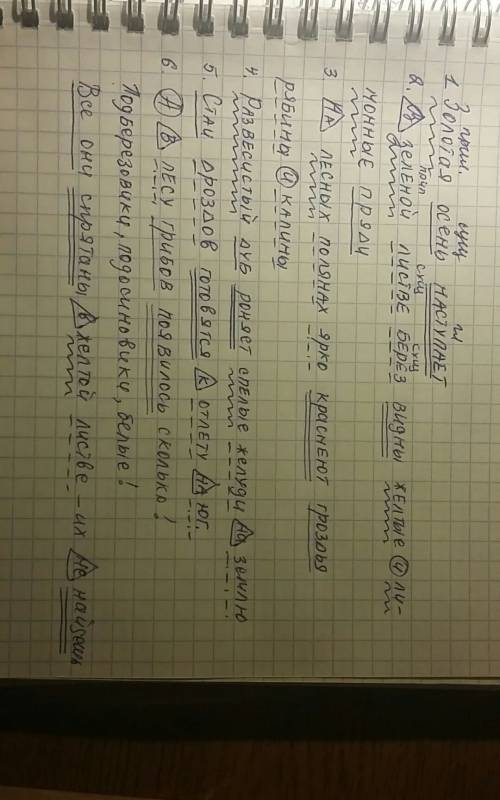 прил. сущ гл
1. Золотая осень наступает
прил сущ сущ
2. В зеленой листве берез видны желтые и ли-
монные пряди
3. На лесных полянах ярко краснеют гроздья
рябины и калины
4. Развесистый дуб роняет спелые желуди на землю
5. Стаи дроздов готовятся к отлету на юг.
6. А в лесу грибов появилось сколько!
Подберезовики, подосиновики, белые!
Все они спрятаны в желтой листве - их не найдешь